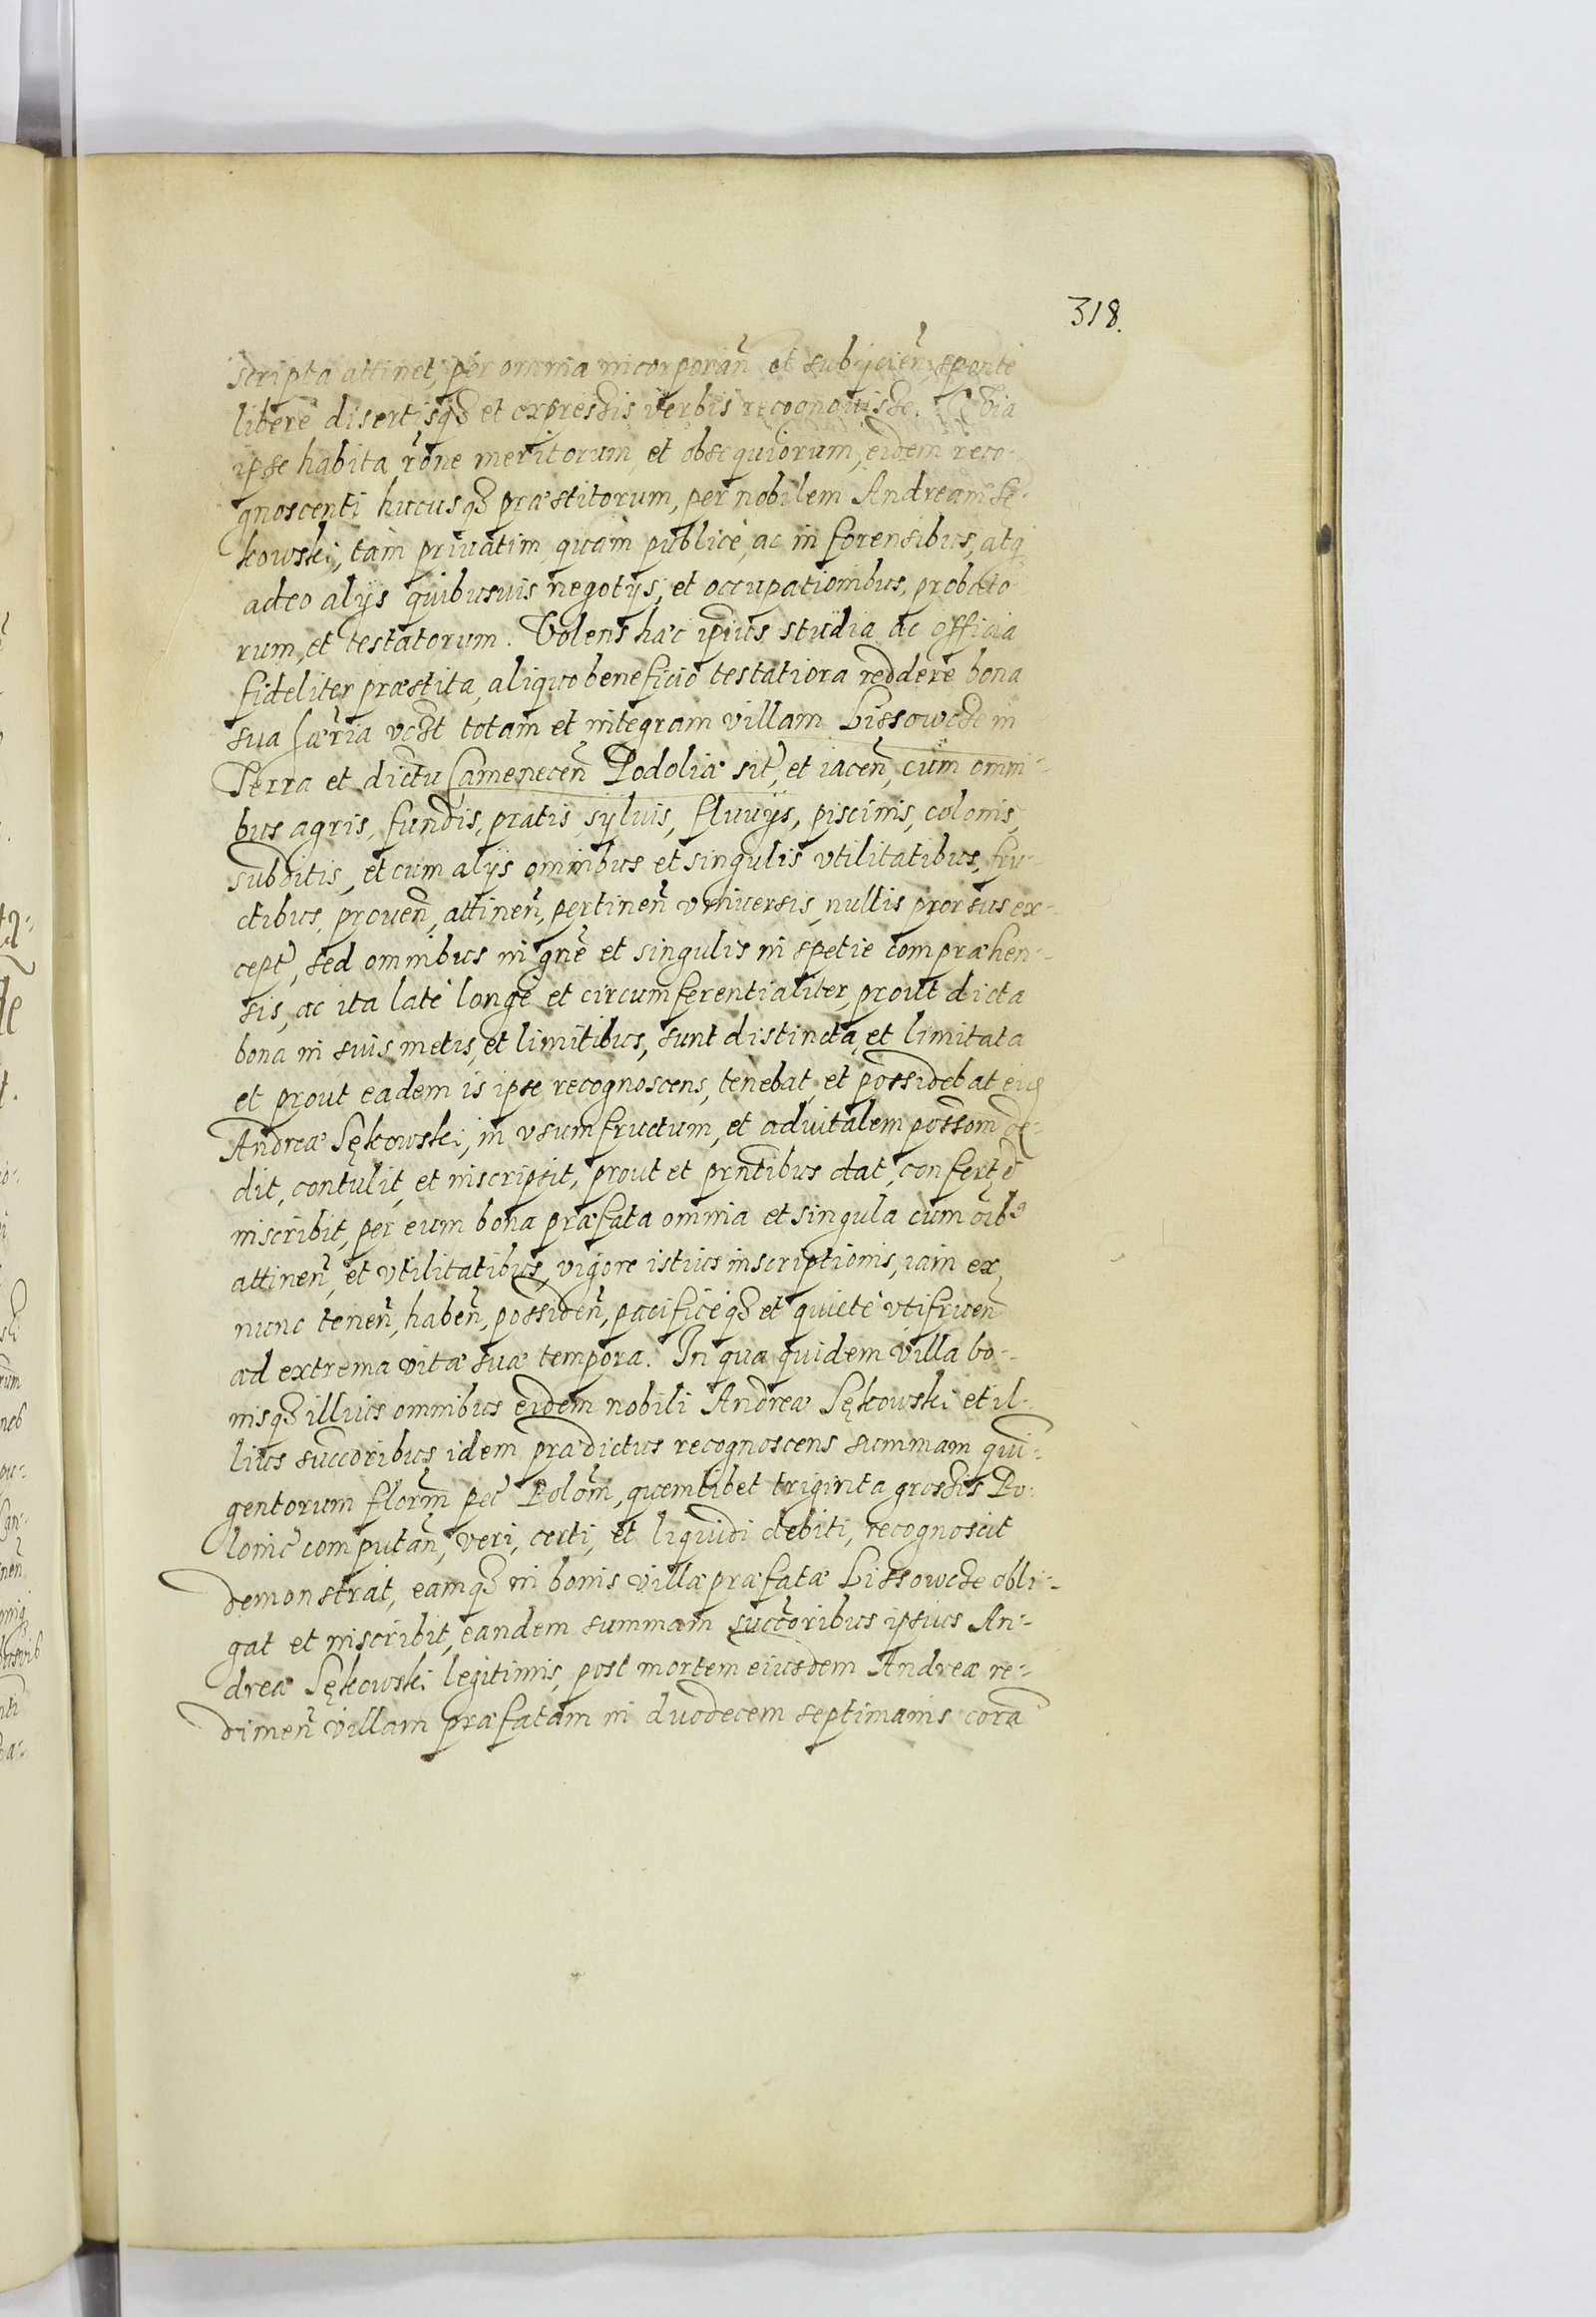 318.
scripta attinet, per omnia incorporan̄ et subijcien̄, sponte
libere disertisq3 et expressis verbis recognouisse. Quia
ipse habita rōne meritorum et obsequiorum, eidem reco-
gnoscenti hucusq3 præstitorum, per nobilem Andream Sę-
kowski, tam priuatim quàm publicè, ac in forensibus, atq
adeo alijs quibusuis negotijs, et occupationibus, probato
rum, et testatorum. Volens hæc ipius studia ac officia
fideliter præstita, aliquo beneficio testatiora reddere bona
sua hæria vczt totam et integram villam Lissowcze in
Terra et dictu Camenecen̄ Podoliæ sit, et iacen̄, cum omni-
bus agris, fundis, pratis, syluis, fluuijs, piscinis, colonis,
subditis, et cum alijs omnibus et singulis vtilitatibus, fru-
ctibus, prouen̄, attinen̄, pertinen̄ vniuersis, nullis prorsus ex-
cept, sed omnibus in gnē et singulis in spetie compræhen-
sis, ac ita latè longè et circumferentialiter, prout dicta
bona in suis metis, et limitibus, sunt distincta, et limitata
et prout eadem is ipse recognoscens, tenebat, et possidebat eiq
Andreæ Sękowski, in vsumfructum, et aduitalem possom de-
dit, contulit, et inscripsit, prout et prntibus dat, confert, et
inscribit, per eum bona præfata omnia et singula cum oib9
attinen̄, et vtilitatibus, vigore istius inscriptionis, iam ex
nunc tenen̄, haben̄, possiden̄, pacificèq3 et quietè vtifruen̄
ad extrema vitæ suæ tempora. In qua quidem villa bo-
nisq3 illius omnibus eidem nobili Andreæ Sękowski et il-
lius succoribus idem prædictus recognoscens summam qui-
gentorum florm̄ pec Polom̄, quemlibet triginta grossis Po-
lonic computan̄, veri, certi, et liquidi debiti, recognoscit
demonstrat, eamq3 in bonis villæ præfatæ Lissowcze obli-
gat et inscribit, eandem summam succoribus ipsius An-
dreæ Sękowski legitimis, post mortem eiusdem Andreæ re-
dimen̄ villam præfatam in duodecem septimanis corā